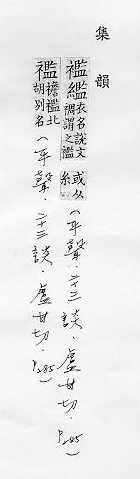 集韻
襤繿 衣名說文裯謂之襤 或从糸 (平聲.二十三談.盧甘切.P285)
襤 襜襤北胡別名 (平聲.二十三談.盧甘切.P285)